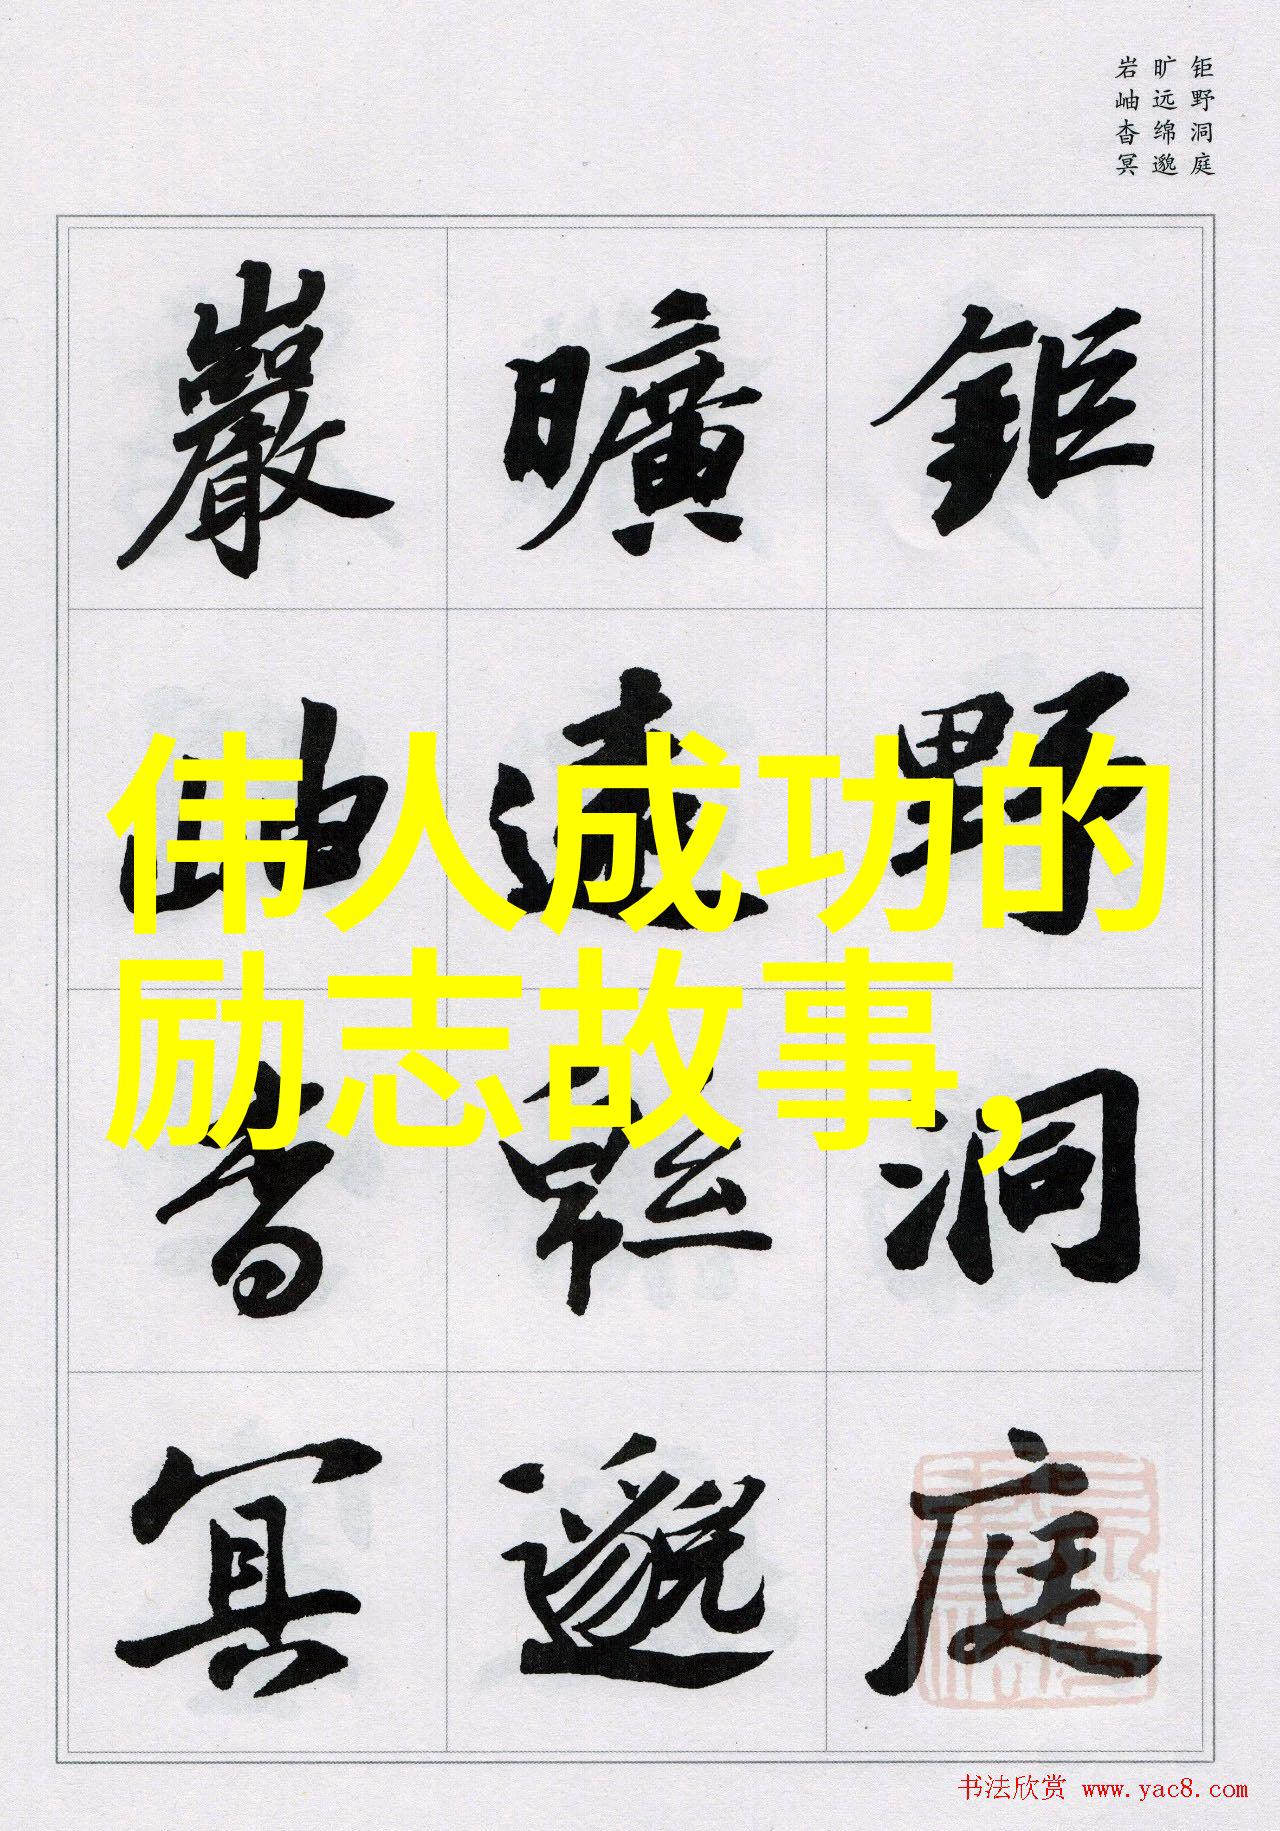 钜野洞庭
旷远绵邈
岩岫杳冥
鉅野洞庭
曠遠緜邈
巖岫杳冥
伟人成功的
励志故事,
书法欣赏 www.yac8.com